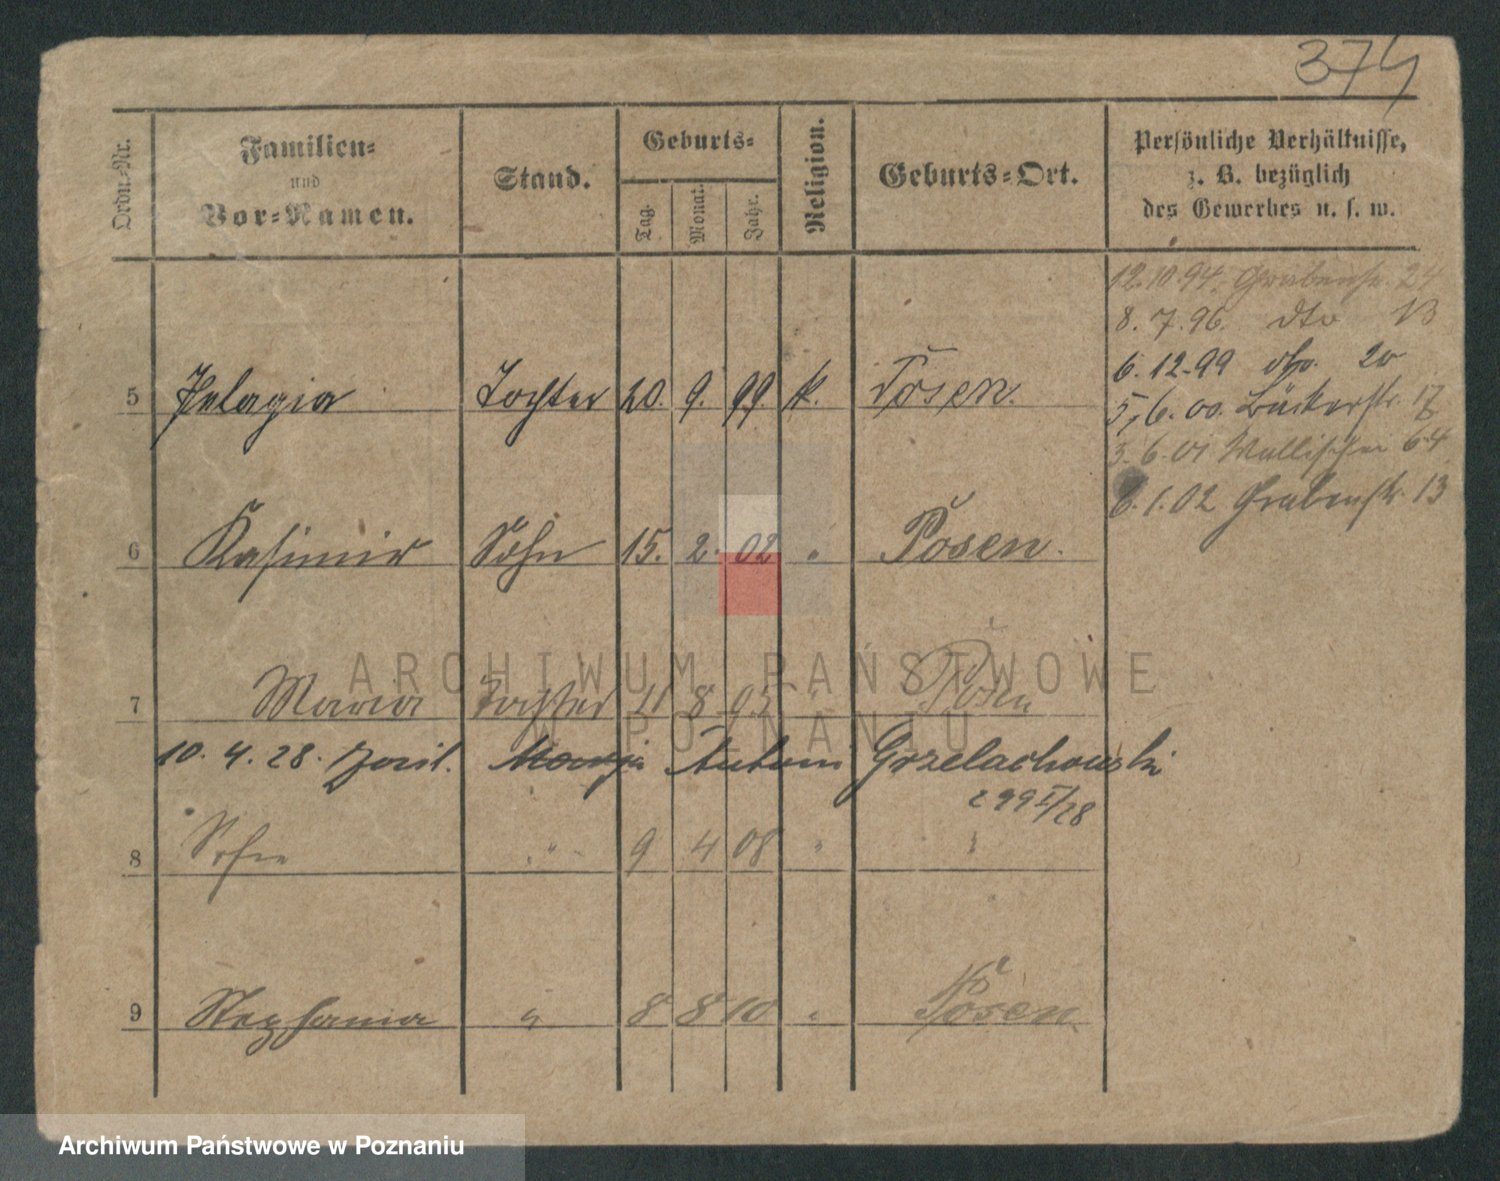 374
Ordn.-Nr. Familien- und Vor-Namen. Stand. Geburts- Tag. Monat. Jahr. Religion. Geburts-Ort. Persönliche Verhältnisse, z. B. bezüglich des Gewerbes u. s. w.
12.10.94. Grabenstr. 24
8. 7. 96. dto 13
6. 12. 99 dto. 20
5 Pelagia Tochter 20. 9. 99. k. Posen.
5. 6. 00. Bäckerstr. 17
3. 6. 01 Wallischei 64
6. 1. 02 Grabenstr. 13
6 Kasimir Sohn 15. 2. 02 " Posen.
7 Maria Tochter 11 8 05 " Posen
10. 4. 28. Antoni Grzelachowski
299 I/28
8 Sofie " 9 4 08 " "
9 Stephania " 8 8 10 " Posen
ARCHIWUM PAŃSTWOWE
W POZNANIU
Archiwum Państwowe w Poznaniu